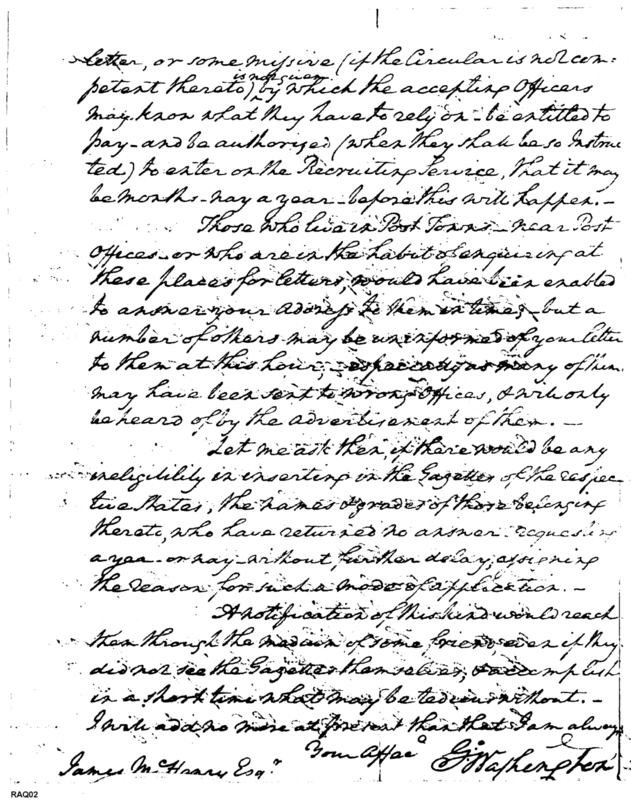 letter, or some missive (if the Circular is not com=
petent thereto) is not given, by which the accepting Officers
may know what they have to rely on - be entitled to
pay - and be authorised (when they shall be so Instruc
ted) to enter on the Recruiting Service, that it may
be months - nay a year - before this will happen. -
Those who live in Post Towns - near Post
Offices - or who are in the habit of enquiring at
these places for letters, would have been enabled
to answer your Address to them in time - but a
number of others may be uninformed of your letter
to them at this hour; especially as many of them
may have been sent to wrong Offices, & will only
be heard of by the advertisement of them. -
Let me ask then, if there would be any
ineligibility in inserting in the Gazettes of the respec
tive States, the names & grades of those belonging
thereto, who have returned no answer - requesting
a yea - or nay - without further delay; assigning
the reason, for such a mode of application. -
A notification of this kind would reach
them through the medium of some friend, even if they
did not see the Gazettes themselves, & accomplish
in a short time what may be tedious without. -
I will add no more at present than that I am always
Your Affec.
James McHenry Esqr.
Go: Washington
RAQ02